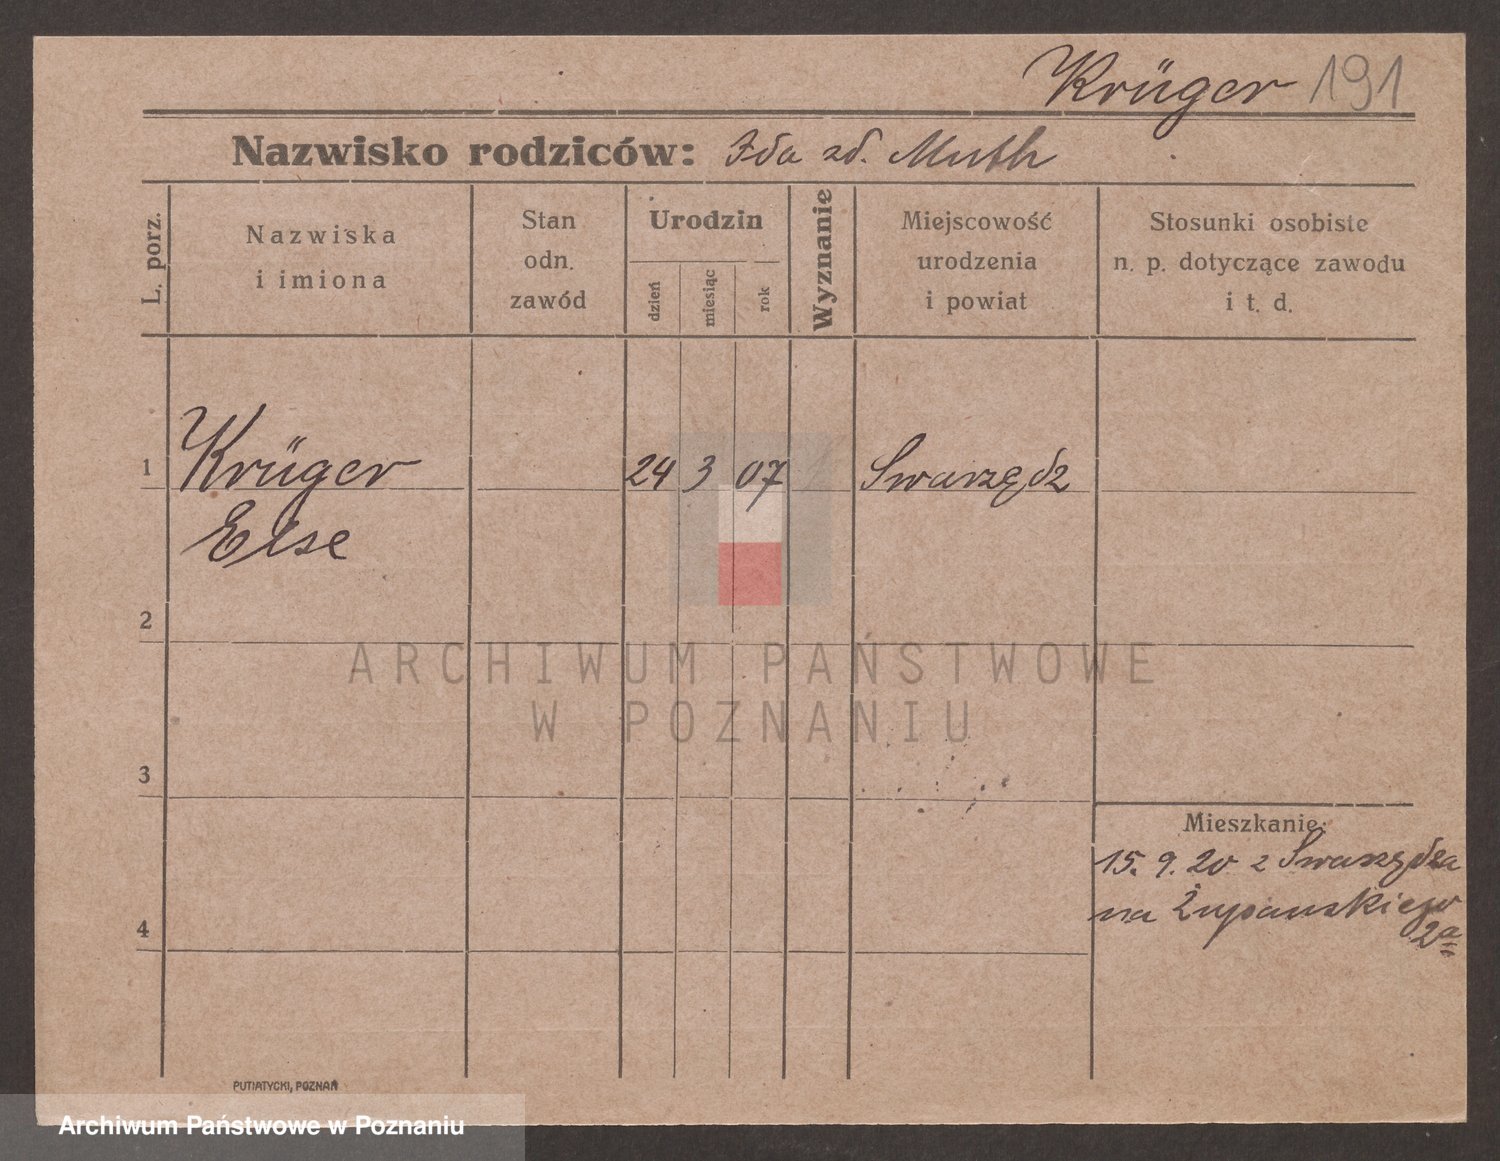 Krüger 191
Nazwisko rodziców: Ida zd. Muth
L. porz.
Nazwiska
i imiona
Stan
odn.
zawód
Urodzin
dzień
miesiąc
rok
Wyznanie
Miejscowość
urodzenia
i powiat
Stosunki osobiste
n. p. dotyczące zawodu
i t. d.
1 Krüger 24 3 07 Swarzędz
Else
2
ARCHIWUM PAŃSTWOWE
W POZNANIU
3
Mieszkanie:
15. 9. 20 z Swarzędza
na Żupańskiego
2a
4
PUTIATYCKI, POZNAŃ
Archiwum Państwowe w Poznaniu